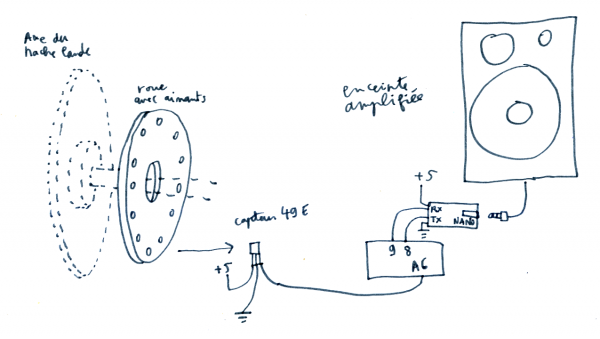 Axe du
hache lande
roue
avec aimants
enceinte
amplifiée
+5
RX
TX
NANO
capteur 49E
+5
9 8
A6